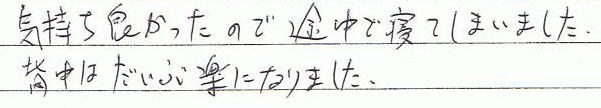 気持ち良かったので途中で寝てしまいました.
背中はだいぶ楽になりました、